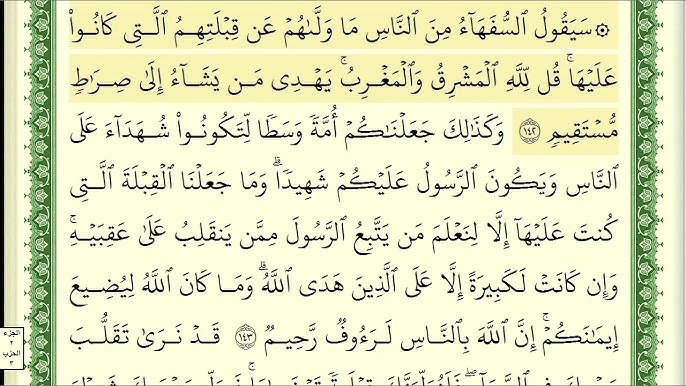 ۞ سَيَقُولُ ٱلسُّفَهَآءُ مِنَ ٱلنَّاسِ مَا وَلَّىٰهُمْ عَن قِبْلَتِهِمُ ٱلَّتِى كَانُوا۟
عَلَيْهَا ۚ قُل لِّلَّهِ ٱلْمَشْرِقُ وَٱلْمَغْرِبُ ۚ يَهْدِى مَن يَشَآءُ إِلَىٰ صِرَٰطٍ
مُّسْتَقِيمٍ ١٤٢ وَكَذَٰلِكَ جَعَلْنَٰكُمْ أُمَّةً وَسَطًا لِّتَكُونُوا۟ شُهَدَآءَ عَلَى
ٱلنَّاسِ وَيَكُونَ ٱلرَّسُولُ عَلَيْكُمْ شَهِيدًا ۗ وَمَا جَعَلْنَا ٱلْقِبْلَةَ ٱلَّتِى
كُنتَ عَلَيْهَآ إِلَّا لِنَعْلَمَ مَن يَتَّبِعُ ٱلرَّسُولَ مِمَّن يَنقَلِبُ عَلَىٰ عَقِبَيْهِ ۚ
وَإِن كَانَتْ لَكَبِيرَةً إِلَّا عَلَى ٱلَّذِينَ هَدَى ٱللَّهُ ۗ وَمَا كَانَ ٱللَّهُ لِيُضِيعَ
إِيمَٰنَكُمْ ۚ إِنَّ ٱللَّهَ بِٱلنَّاسِ لَرَءُوفٌ رَّحِيمٌ ١٤٣ قَدْ نَرَىٰ تَقَلُّبَ
الجزء
٢
الحزب
٣